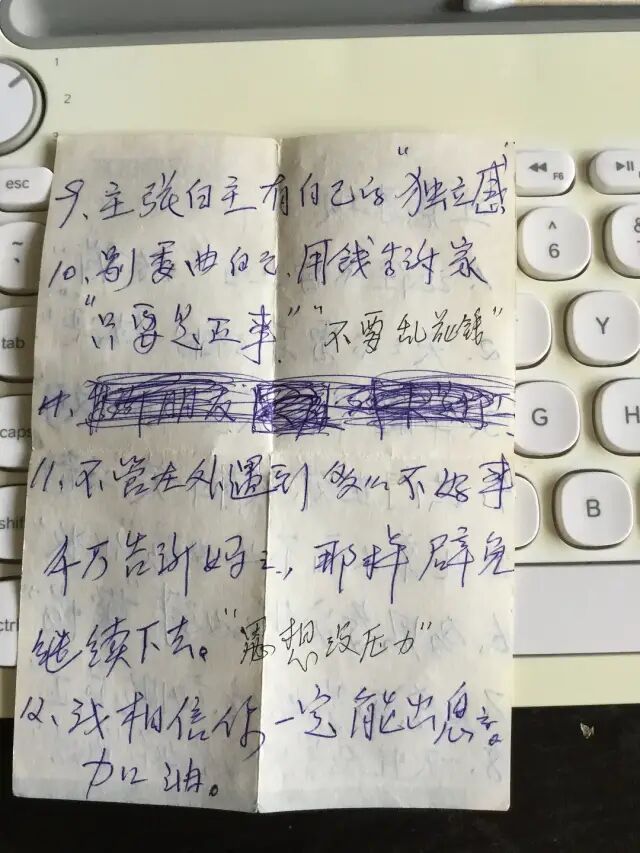 9、主张自主有自己的“独立感”
10、别委曲自己、用钱告诉家
“只要是正事”“不要乱花钱”
11、不管在外遇到做么不好事
千万告诉妈妈，那样辟免
继续下去。“思想没压力”
12、我相信你，一定能出息。
加油。
1
2
esc
F6
^
6
~
tab
Y
caps
G
H
shift
B
ctrl